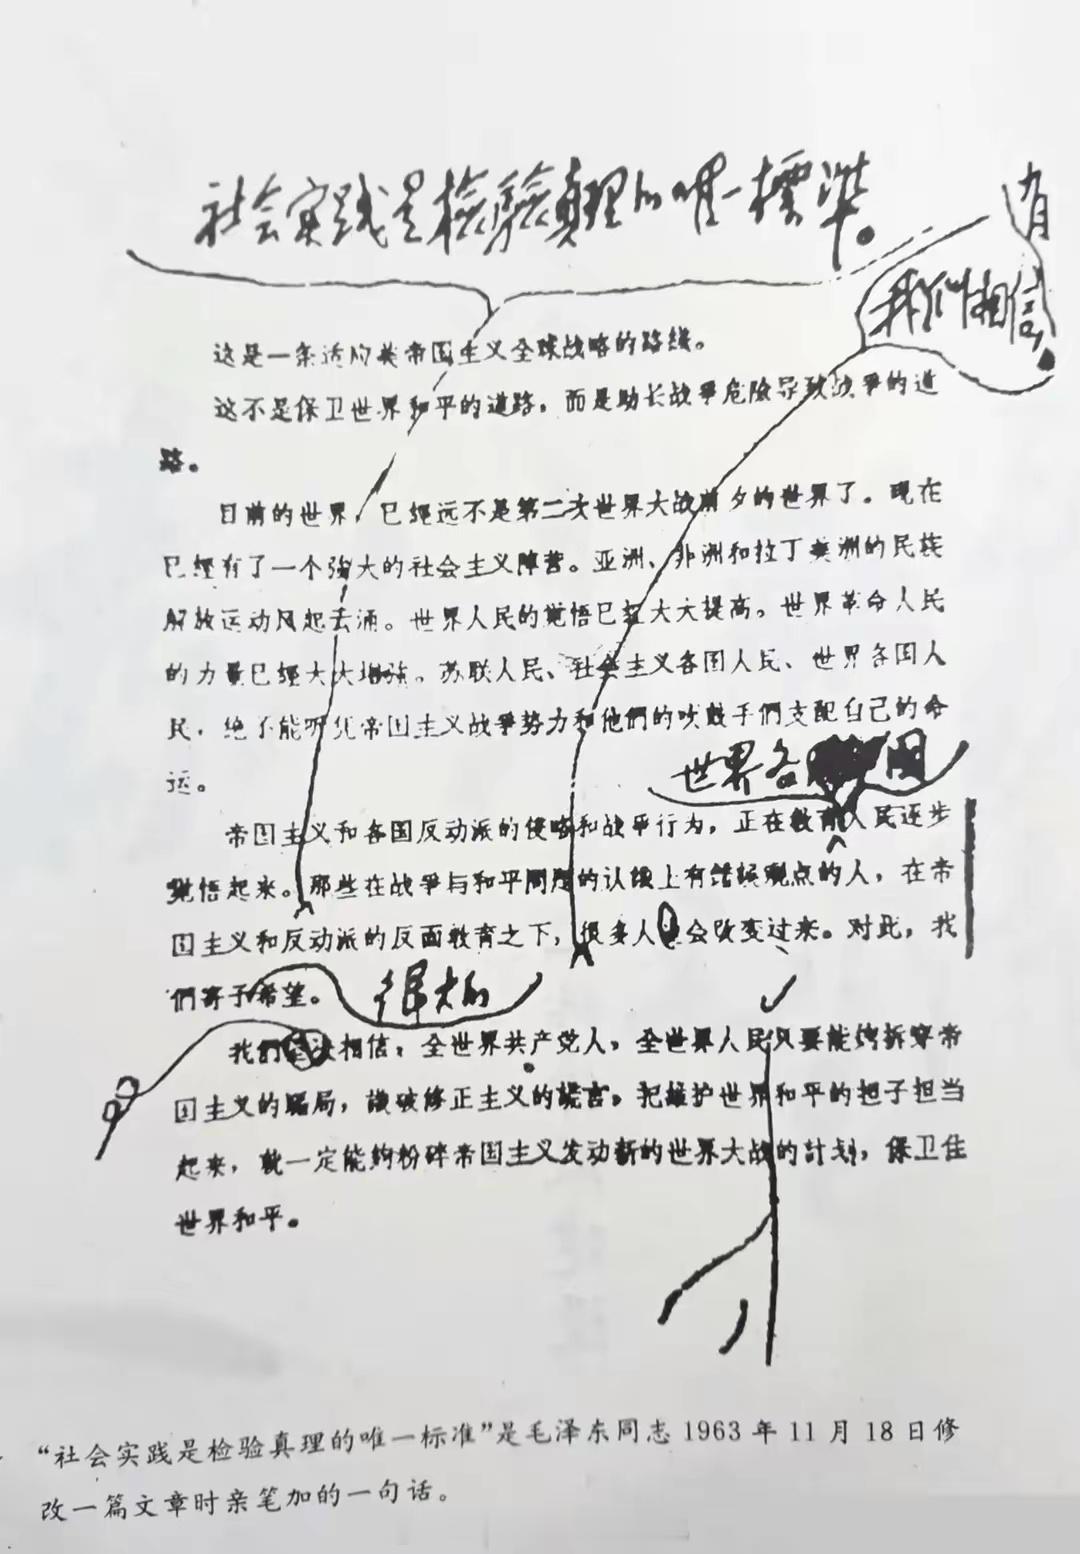 社会实践是檢驗真理的唯一標準。
有
我们相信，
这是一条适应美帝国主义全球战略的路线。
这不是保卫世界和平的道路，而是助长战爭危险导致战爭的道
路。
目前的世界，已經远不是第二次世界大战前夕的世界了。現在
已經有了一个強大的社会主义陣营。亚洲、非洲和拉丁美洲的民族
解放运动风起云涌。世界人民的覚悟已經大大提高。世界革命人民
的力量已經大大增強。苏联人民、社会主义各国人民、世界各国人
民，绝不能听凭帝国主义战爭势力和他們的吹鼓手們支配自己的命
运。
世界各国
帝国主义和各国反动派的侵略和战爭行为，正在教育人民逐步
覚悟起来。那些在战爭与和平問題的认識上有錯誤观点的人，在帝
国主义和反动派的反面教育之下，很多人会改变过来。对此，我
們寄予希望。
很大的
我們坚决相信，全世界共产党人，全世界人民只要能够拆穿帝
国主义的騙局，識破修正主义的謊言，把維护世界和平的担子担当
起来，就一定能夠粉碎帝国主义发动新的世界大战的計划，保卫住
世界和平。
“社会实践是检验真理的唯一标准”是毛泽东同志1963年11月18日修
改一篇文章时亲笔加的一句话。